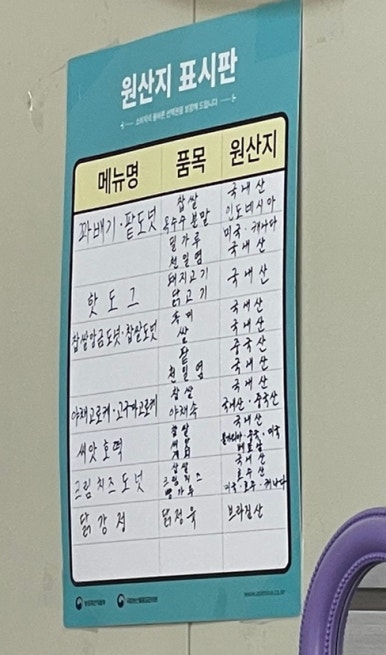 원산지 표시판
소비자의 올바른 선택권을 보장해 드립니다
메뉴명 품목 원산지
꽈배기·팥도넛 찹쌀 국내산
옥수수분말 인도네시아
밀가루 미국·캐나다
천일염 국내산
핫도그 돼지고기 국내산
닭고기
국내산
찹쌀앙금도넛·찹쌀도넛 쌀 국내산
팥 중국산
천일염 국내산
찹쌀 국내산
야채고로케·고구마고로케 야채속 국내산·중국산
씨앗호떡 찹쌀 국내산
찹쌀 국내산
크림치즈도넛 크림치즈 호주산
밀가루 미국·호주·캐나다
닭강정 닭정육 브라질산